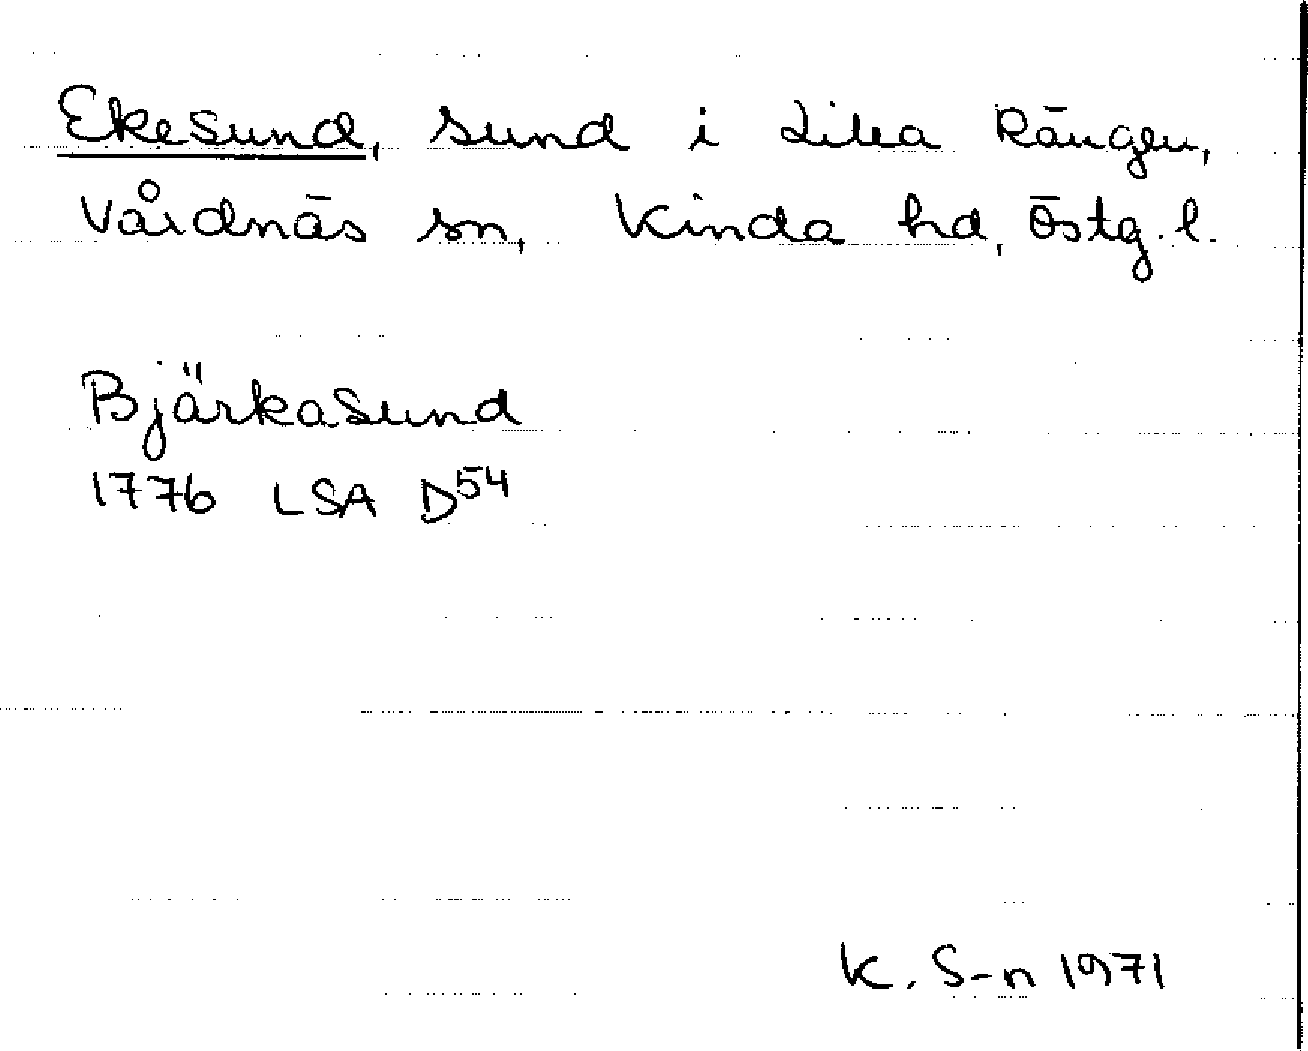 Ekesund, sund i Lilla Rängen,
Vårdnäs sn, Kinda hd, Östg. l.
Bjärkasund
1776 LSA D54
K. S-n 1971